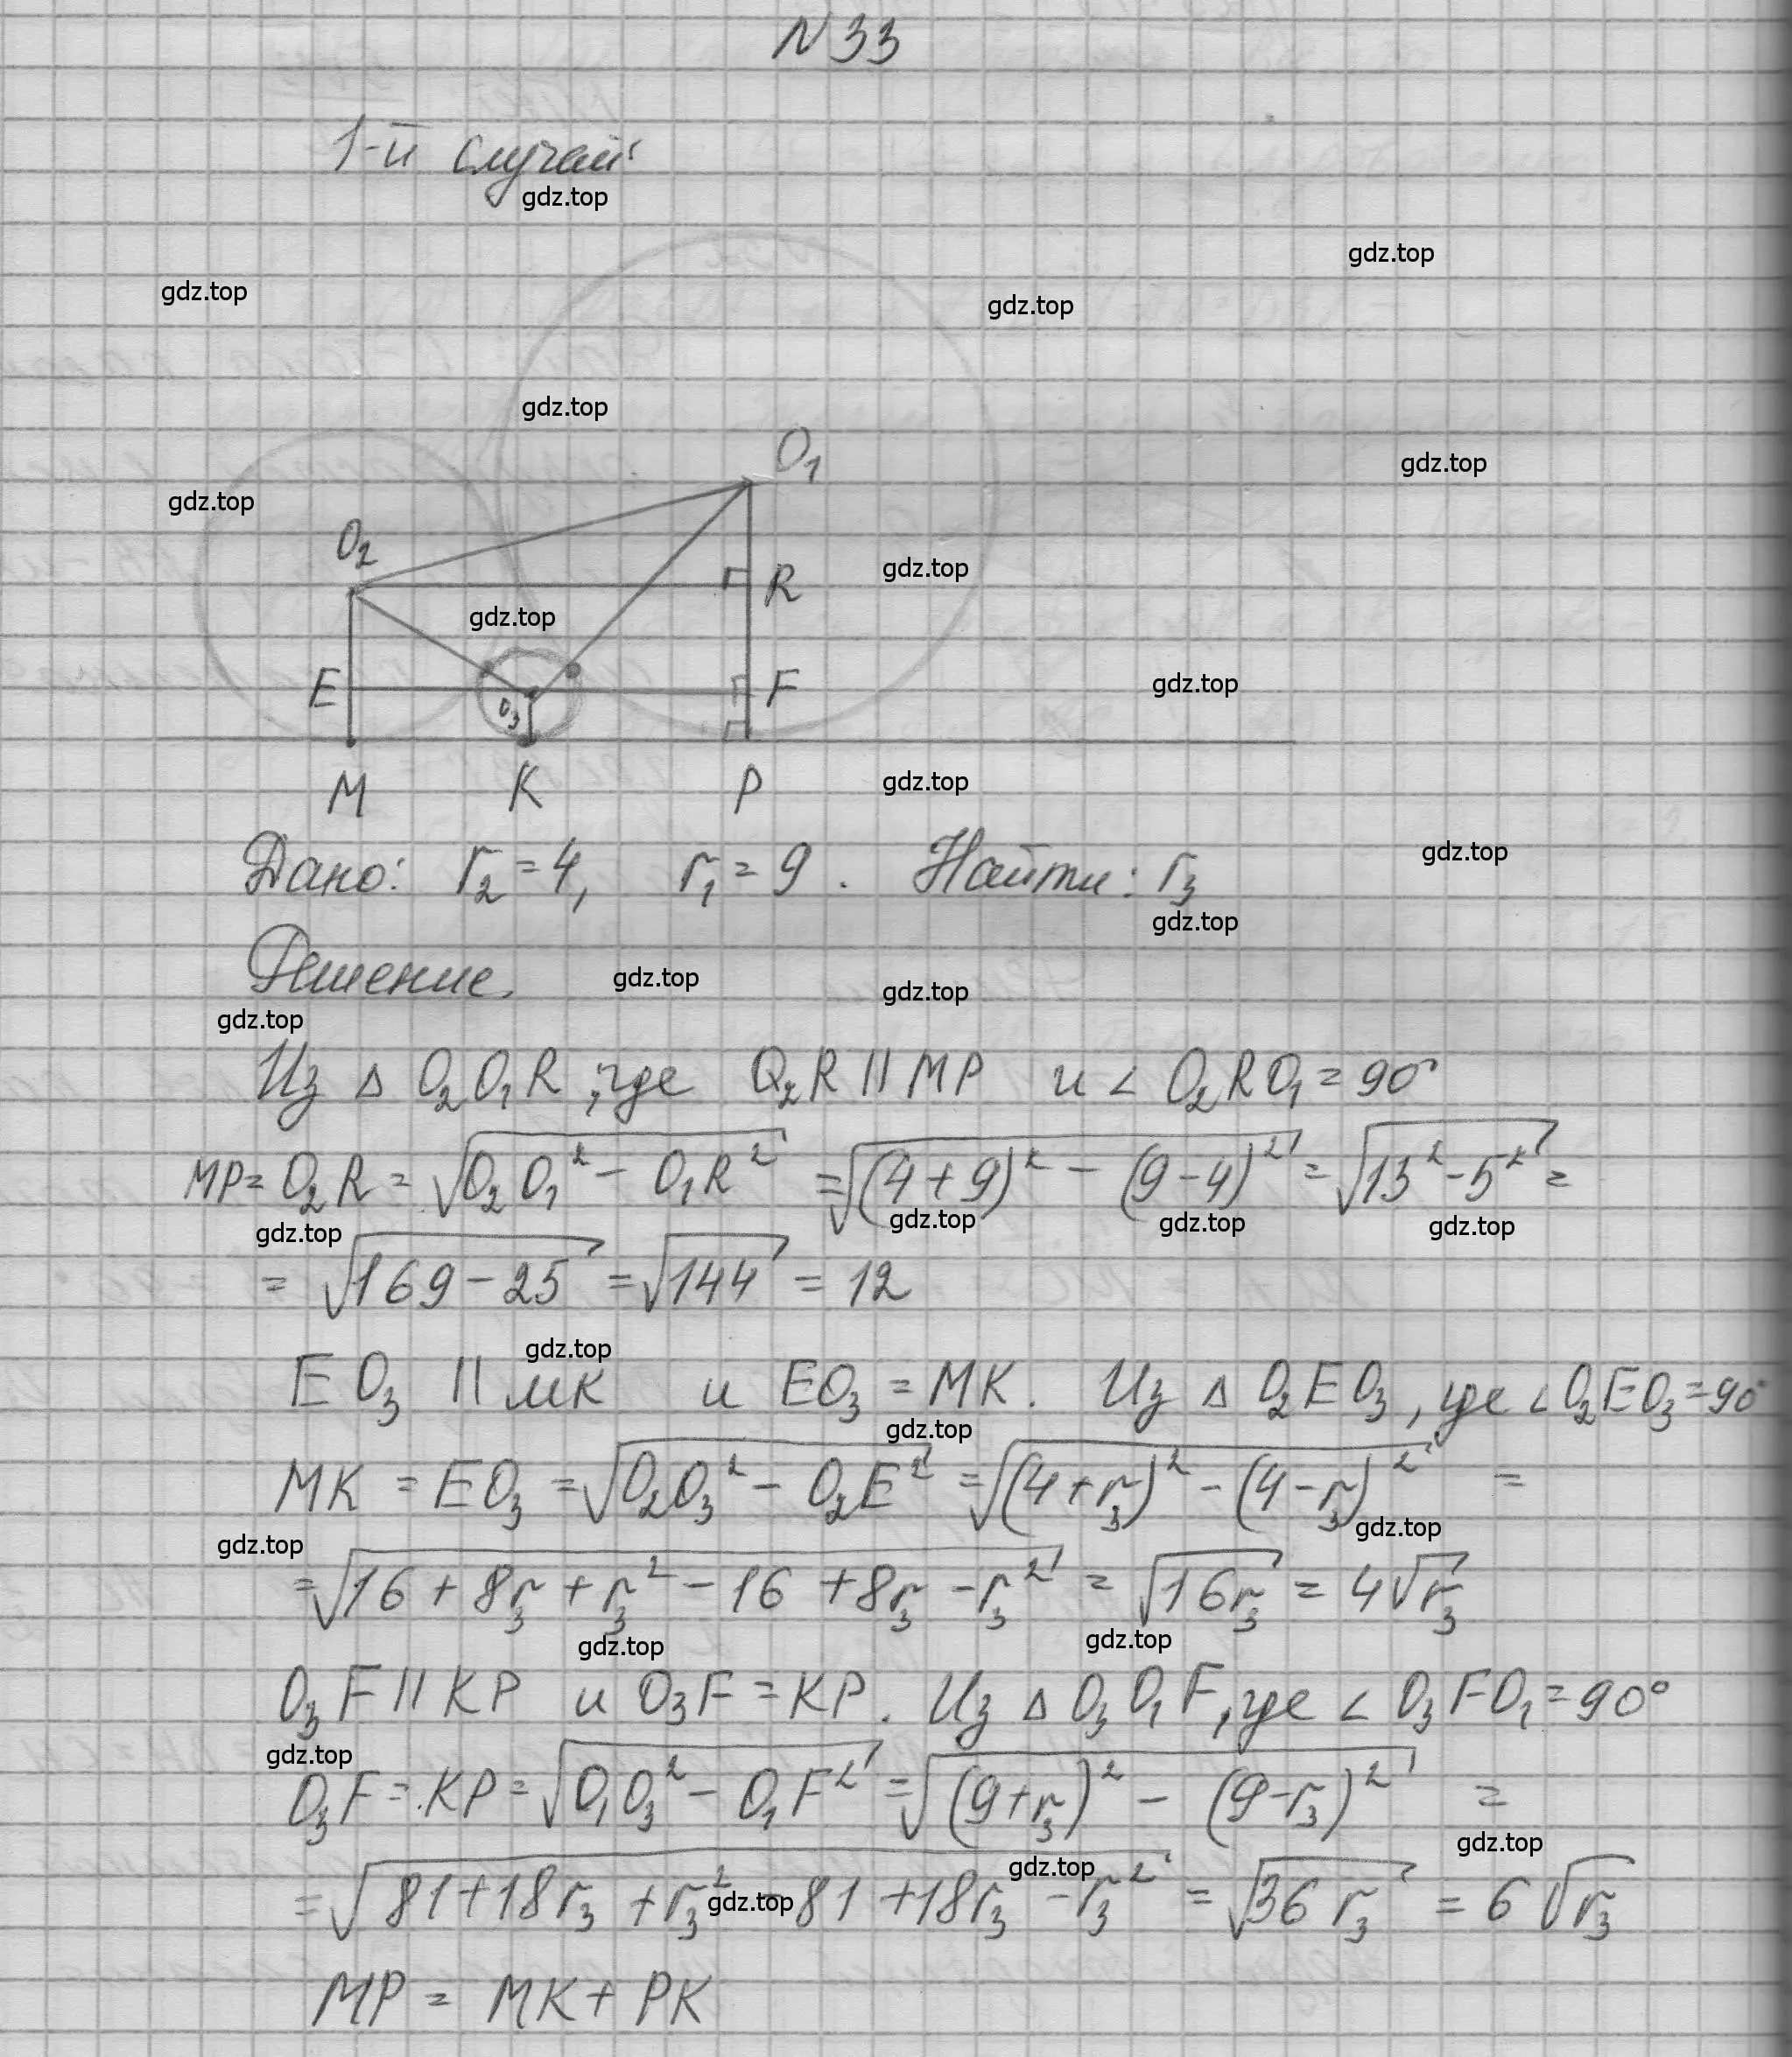 N33
1-й случай:
gdz.top
gdz.top
gdz.top
gdz.top
gdz.top
O₁
gdz.top
gdz.top
O₂
gdz.top
R
gdz.top
E
F
gdz.top
O₃
M K P
gdz.top
Дано: r₂=4, r₁=9. Найти: r₃
gdz.top
gdz.top
Решение.
gdz.top
gdz.top
gdz.top
Из △ O₂O₁R, где O₂R || MP и ∠ O₂RO₁=90°
MP= O₂R = √(O₂O₁² - O₁R²) = √((4+9)² - (9-4)²) = √(13²-5²) =
gdz.top
gdz.top
gdz.top
gdz.top
= √(169-25) = √144 = 12
gdz.top
EO₃ || MK и EO₃ = MK. Из △ O₂EO₃, где ∠O₂EO₃=90°
gdz.top
MK = EO₃ = √(O₂O₃² - O₂E²) = √((4+r₃)² - (4-r₃)²) =
gdz.top
gdz.top
= √(16 + 8r₃ + r₃² - 16 + 8r₃ - r₃²) = √(16r₃) = 4√r₃
gdz.top
gdz.top
O₃F || KP и O₃F = KP. Из △ O₃O₁F, где ∠ O₃FO₁=90°
gdz.top
O₃F = KP = √(O₁O₃² - O₁F²) = √((9+r₃)² - (9-r₃)²) =
gdz.top
gdz.top
= √(81+18r₃ + r₃² - 81 + 18r₃ - r₃²) = √(36 r₃) = 6√r₃
gdz.top
MP = MK + PK